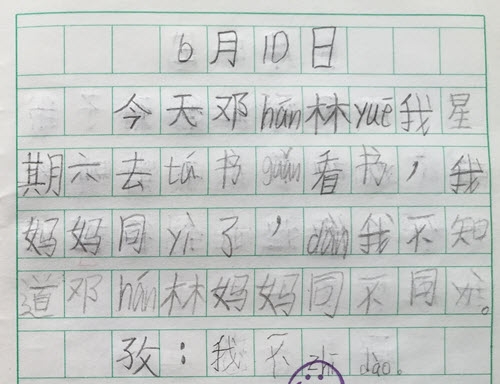 6月10日
今天邓hán林yuē我星
期六去tú书guǎn看书，我
妈妈同yì了，dàn我不知
道邓hán林妈妈同不同yì。
孜：我不zhīdào。